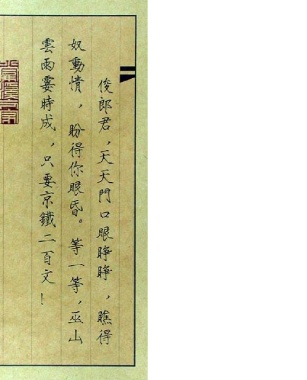 俊郎君，天天門口眼睜睜，瞧得
奴動情，盼得你眼昏。等一等，巫山
雲雨霎時成，只要京鐵二百文！